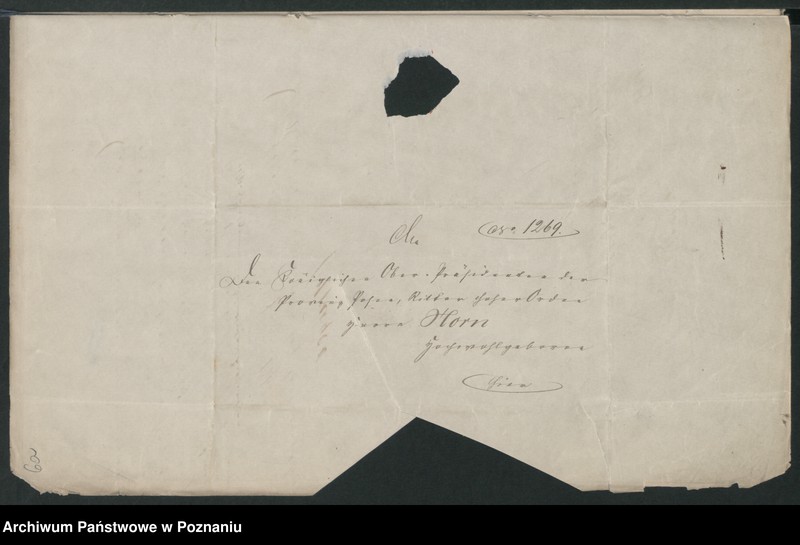 No 1269.
An
Den Königlichen Ober-Präsidenten der
Provinz Posen, Ritter hoher Orden
Herrn Horn
Hochwohlgeboren
hier
62
Archiwum Państwowe w Poznaniu